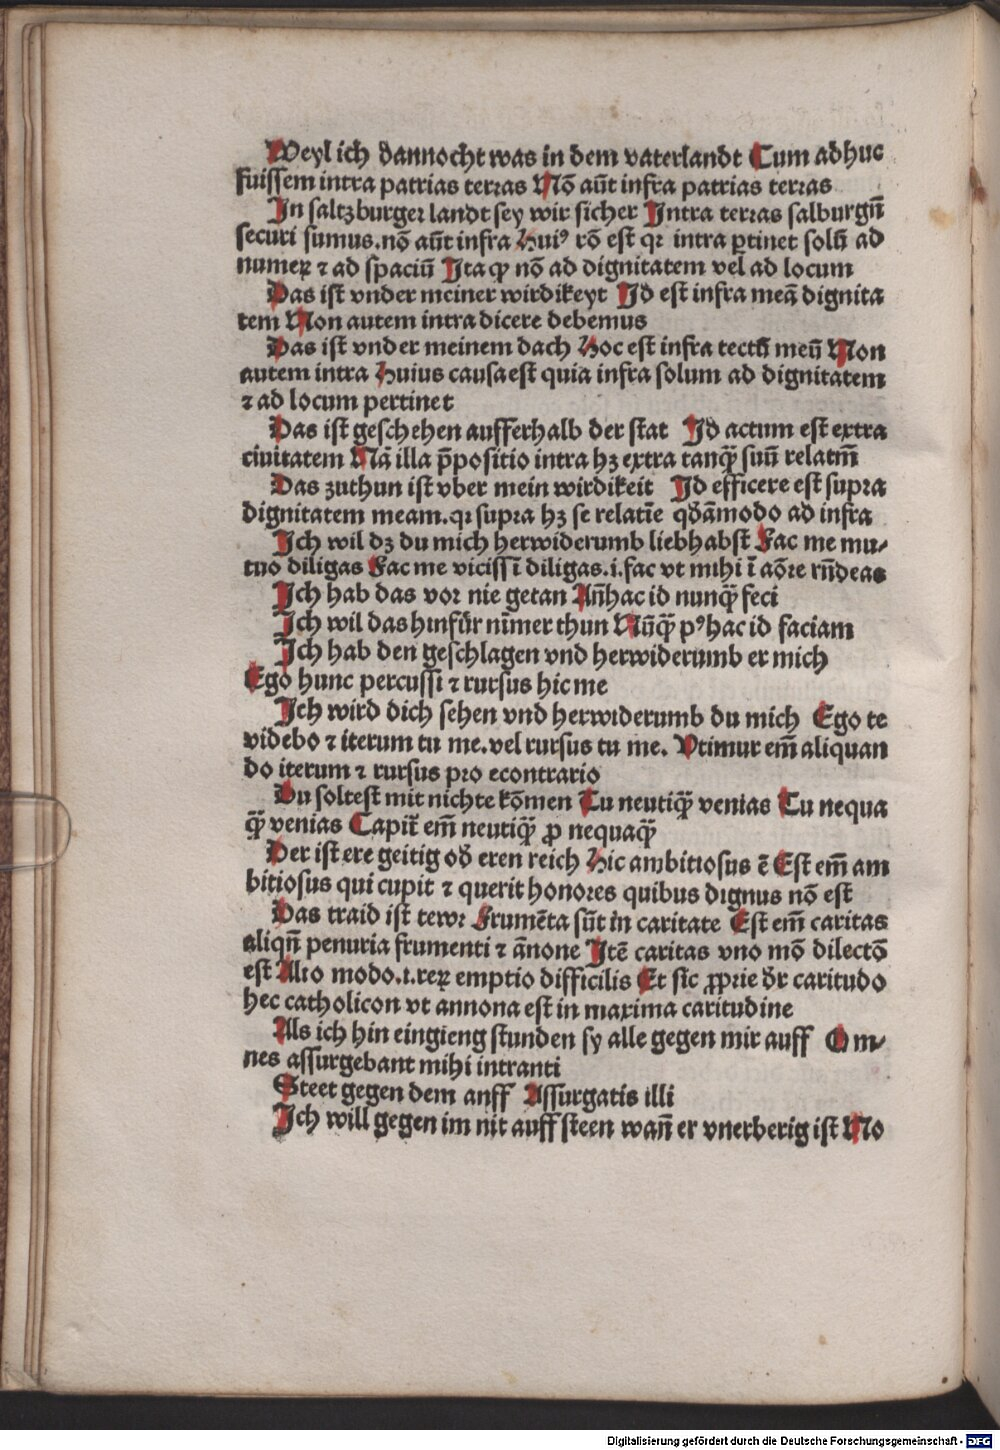 Weyl ich dannocht was in dem vaterlandt Cum adhuc
fuissem intra patrias terras Nō aūt infra patrias terras
In saltzburger landt sey wir sicher Intra terras salburgn̄
securi sumus.nō aūt infra Huiꝰ rō est qꝛ intra ꝑtinet solū ad
numeꝝ ⁊ ad spaciū Itaqꝫ nō ad dignitatem vel ad locum
Das ist vnder meiner wirdikeyt Id est infra meā dignita
tem Non autem intra dicere debemus
Das ist vnder meinem dach Hoc est infra tectū meū Non
autem intra Huius causa est quia infra solum ad dignitatem
⁊ ad locum pertinet
Das ist geschehen aufferhalb der stat Id actum est extra
ciuitatem Nā illa p̄positio intra hꝫ extra tanqꝫ̄ suū relatm̄
Das zuthun ist vber mein wirdikeit Id efficere est supra
dignitatem meam.qꝛ supra hꝫ se relatīe qđāmodo ad infra
Ich wil dꝫ du mich herwiderumb liebhabst Fac me mu⸗
tuo diligas Fac me vicissī diligas.i.fac vt mihi ī aōre rn̄deas
Ich hab das vor nie getan An̄hac id nunqꝫ̄ feci
Ich wil das hinfür nīmer thun Nūqꝫ̄ pꝰhac id faciam
Ich hab den geschlagen vnd herwiderumb er mich
Ego hunc percussi ⁊ rursus hic me
Ich wird dich sehen vnd herwiderumb du mich Ego te
videbo ⁊ iterum tu me.vel rursus tu me. Vtimur em̄ aliquan
do iterum ⁊ rursus pro econtrario
Du soltest mit nichte kōmen Tu neutiqꝫ̄ venias Tu nequa
qꝫ̄ venias Capit̄ em̄ neutiqꝫ̄ ꝓ nequaqꝫ̄
Der ist ere geitig od̕ eren reich Hic ambitiosus ē Est em̄ am
bitiosus qui cupit ⁊ querit honores quibus dignus nō est
Das traid ist tewr Frumēta sūt in caritate Est em̄ caritas
aliqn̄ penuria frumenti ⁊ ānone Itē caritas vno mō dilectō
est Alio modo.i.reꝝ emptio difficilis Et sic ꝓprie dr̄ caritudo
hec catholicon vt annona est in maxima caritudine
Als ich hin eingieng stunden sy alle gegen mir auff Om⸗
nes assurgebant mihi intranti
Steet gegen dem anff Assurgatis illi
Ich will gegen im nit auff steen wan̄ er vnerberig ist No
Digitalisierung gefördert durch die Deutsche Forschungsgemeinschaft - DFG